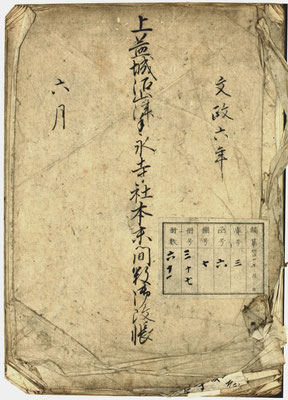 文政六年
上益城沼山津手永寺社本末間数御改帳
六月
番号 三
函号 六
棚号 七
冊号 三十七
冊数 六十一